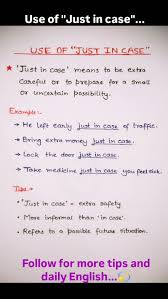 Use of "Just in case"...
USE OF "JUST IN CASE"
★ 'Just in case' means to be extra
careful or to prepare for a small
or uncertain possibility.
Example:-
→ He left early just in case of traffic.
→ Bring extra money just in case.
→ Lock the door just in case.
→ Take medicine just in case you feel sick.
Tips:-
• 'Just in case' = extra safety
• More informal than 'in case'.
• Refers to a possible future situation.
Follow for more tips and
daily English...💫